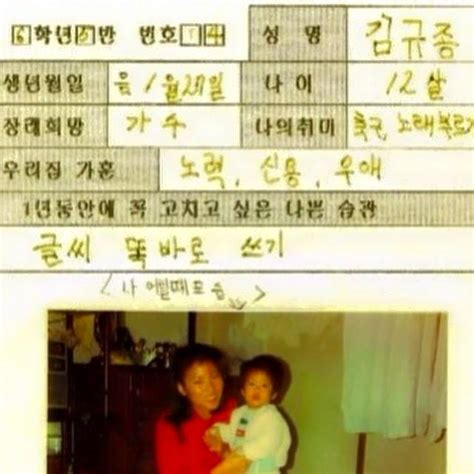 6학년 5반 번호 14 성명 김규종
생년월일 음 1월 28일 나이 12살
장래희망 가수 나의취미 축구, 노래부르기
우리집 가훈 노력, 신용, 우애
1년동안에 꼭 고치고 싶은 나쁜 습관
글씨 똑바로 쓰기
<나 어릴때 모습>